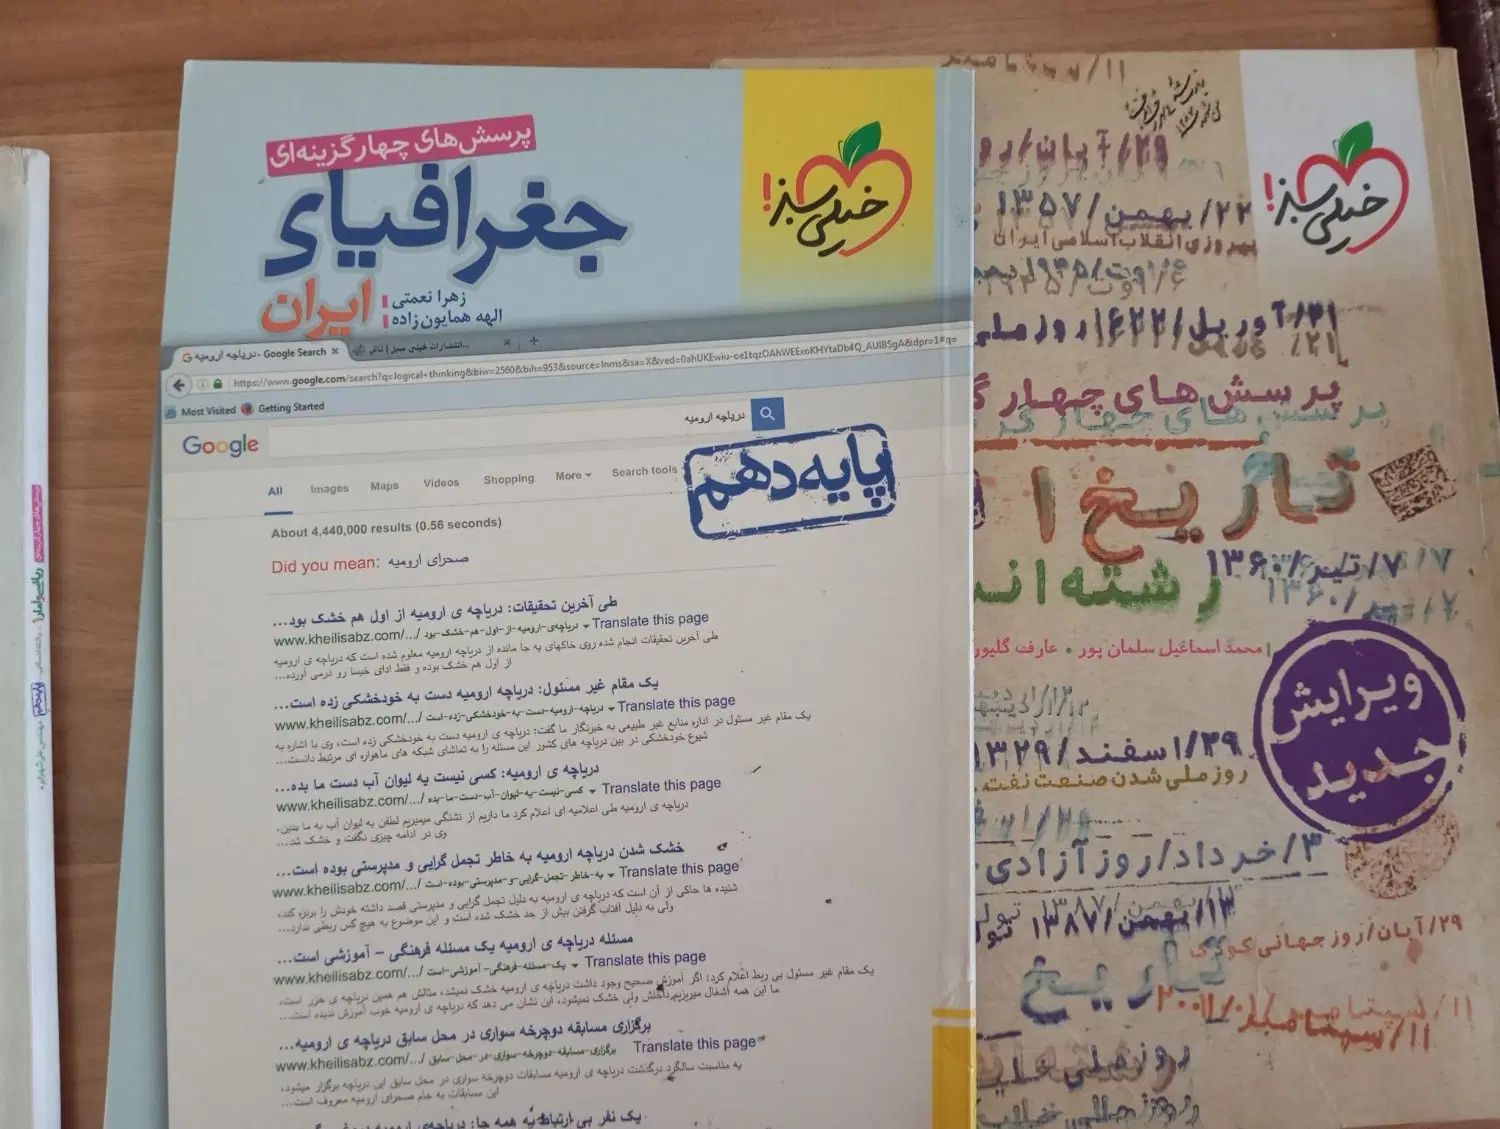 پرسش‌های چهارگزینه‌ای
جغرافیای
ایران
زهرا نعمتی
الهه همایون‌زاده
خیلی سبز!
دریاچه ارومیه - Google Search
انتشارات خیلی سبز | تلاش...
https://www.google.com/search?q=logical+thinking&biw=2560&bih=953&source=lnms&sa=X&ved=0ahUKEwiu-oe1tqzOAhWEExoKHYtaDb4Q_AUIBSgA&dpr=1#q=
Most Visited Getting Started
Google
دریاچه ارومیه
All Images Maps Videos Shopping More Search tools
پایه دهم
About 4,440,000 results (0.56 seconds)
Did you mean: صحرای ارومیه
طی آخرین تحقیقات: دریاچه ی ارومیه از اول هم خشک بود...
www.kheilisabz.com/.../دریاچه‌ی-ارومیه-از-اول-هم-خشک-بود Translate this page
طی آخرین تحقیقات انجام شده روی خاکهای به جا مانده از دریاچه ارومیه معلوم شده است که دریاچه ی ارومیه
از اول هم خشک بوده و فقط ادای خیسا رو درمی آورده...
یک مقام غیر مسئول: دریاچه ارومیه دست به خودخشکی زده است...
www.kheilisabz.com/.../دریاچه-ارومیه-دست-به-خودخشکی-زده-است Translate this page
یک مقام غیر مسئول در اداره منابع غیر طبیعی به خبرنگار ما گفت: دریاچه ی ارومیه دست به خودخشکی زده است، وی با اشاره به
شیوع خودخشکی در بین دریاچه های کشور این مسئله را به تماشای شبکه های ماهواره ای مرتبط دانست...
دریاچه ی ارومیه: کسی نیست یه لیوان آب دست ما بده...
www.kheilisabz.com/.../کسی-نیست-یه-لیوان-آب-دست-ما-بده Translate this page
دریاچه ی ارومیه طی اعلامیه ای اعلام کرد ما داریم از تشنگی میمیریم لطفن یه لیوان آب به ما بدین.
وی در ادامه چیزی نگفت و خشک شد...
خشک شدن دریاچه ارومیه به خاطر تجمل گرایی و مدپرستی بوده است...
www.kheilisabz.com/.../به-خاطر-تجمل-گرایی-و-مدپرستی-بوده-است Translate this page
شنیده ها حاکی از آن است که دریاچه ی ارومیه به دلیل تجمل گرایی و مدپرستی قصد داشته خودش را برنزه کند،
ولی به دلیل آفتاب گرفتن بیش از حد خشک شده است و این موضوع به هیچ کس ربطی ندارد...
مسئله دریاچه ی ارومیه یک مسئله فرهنگی - آموزشی است...
www.kheilisabz.com/.../یک-مسئله-فرهنگی-آموزشی-است Translate this page
یک مقام غیر مسئول بی ربط اعلام کرد: اگر آموزش صحیح وجود داشت دریاچه ی ارومیه خشک نمیشد، مثالش هم همین دریاچه ی خزر است،
ما این همه آشغال میریزیم داخلش ولی خشک نمیشود، این نشان می دهد که دریاچه ی ارومیه خوب آموزش ندیده است...
برگزاری مسابقه دوچرخه سواری در محل سابق دریاچه ی ارومیه...
www.kheilisabz.com/.../برگزاری-مسابقه-دوچرخه-سواری-در-محل-سابق Translate this page
به مناسبت سالگرد درگذشت دریاچه ی ارومیه مسابقات دوچرخه سواری در محل سابق این دریاچه برگزار میشود،
این مسابقات به جام صحرای ارومیه معروف است...
یک نفر بی ارتباط به همه جا: دریاچه‌ی ارومیه
خیلی سبز!
۲۹/آبان/رو
۲۲/بهمن/۱۳۵۷
پیروزی انقلاب اسلامی ایران
۶/اوت/۱۹۴۵
۲۱/آوریل/۱۶۲۲/روز ملی
پرسش های چهار گ
تاریخ ا
۷/تیر/۱۳۶۰
رشته انس
محمد اسماعیل سلمان پور • عارف گلپور
ویرایش
جدید
۲۹/اسفند/۱۳۲۹
روز ملی شدن صنعت نفت
۳/خرداد/روز آزادی
۱۳/بهمن/۱۳۸۷ تول
۲۹/آبان/روز جهانی کودک
تاریخ
۱۱/سپتامبر/۲۰۰۱
روز ملی